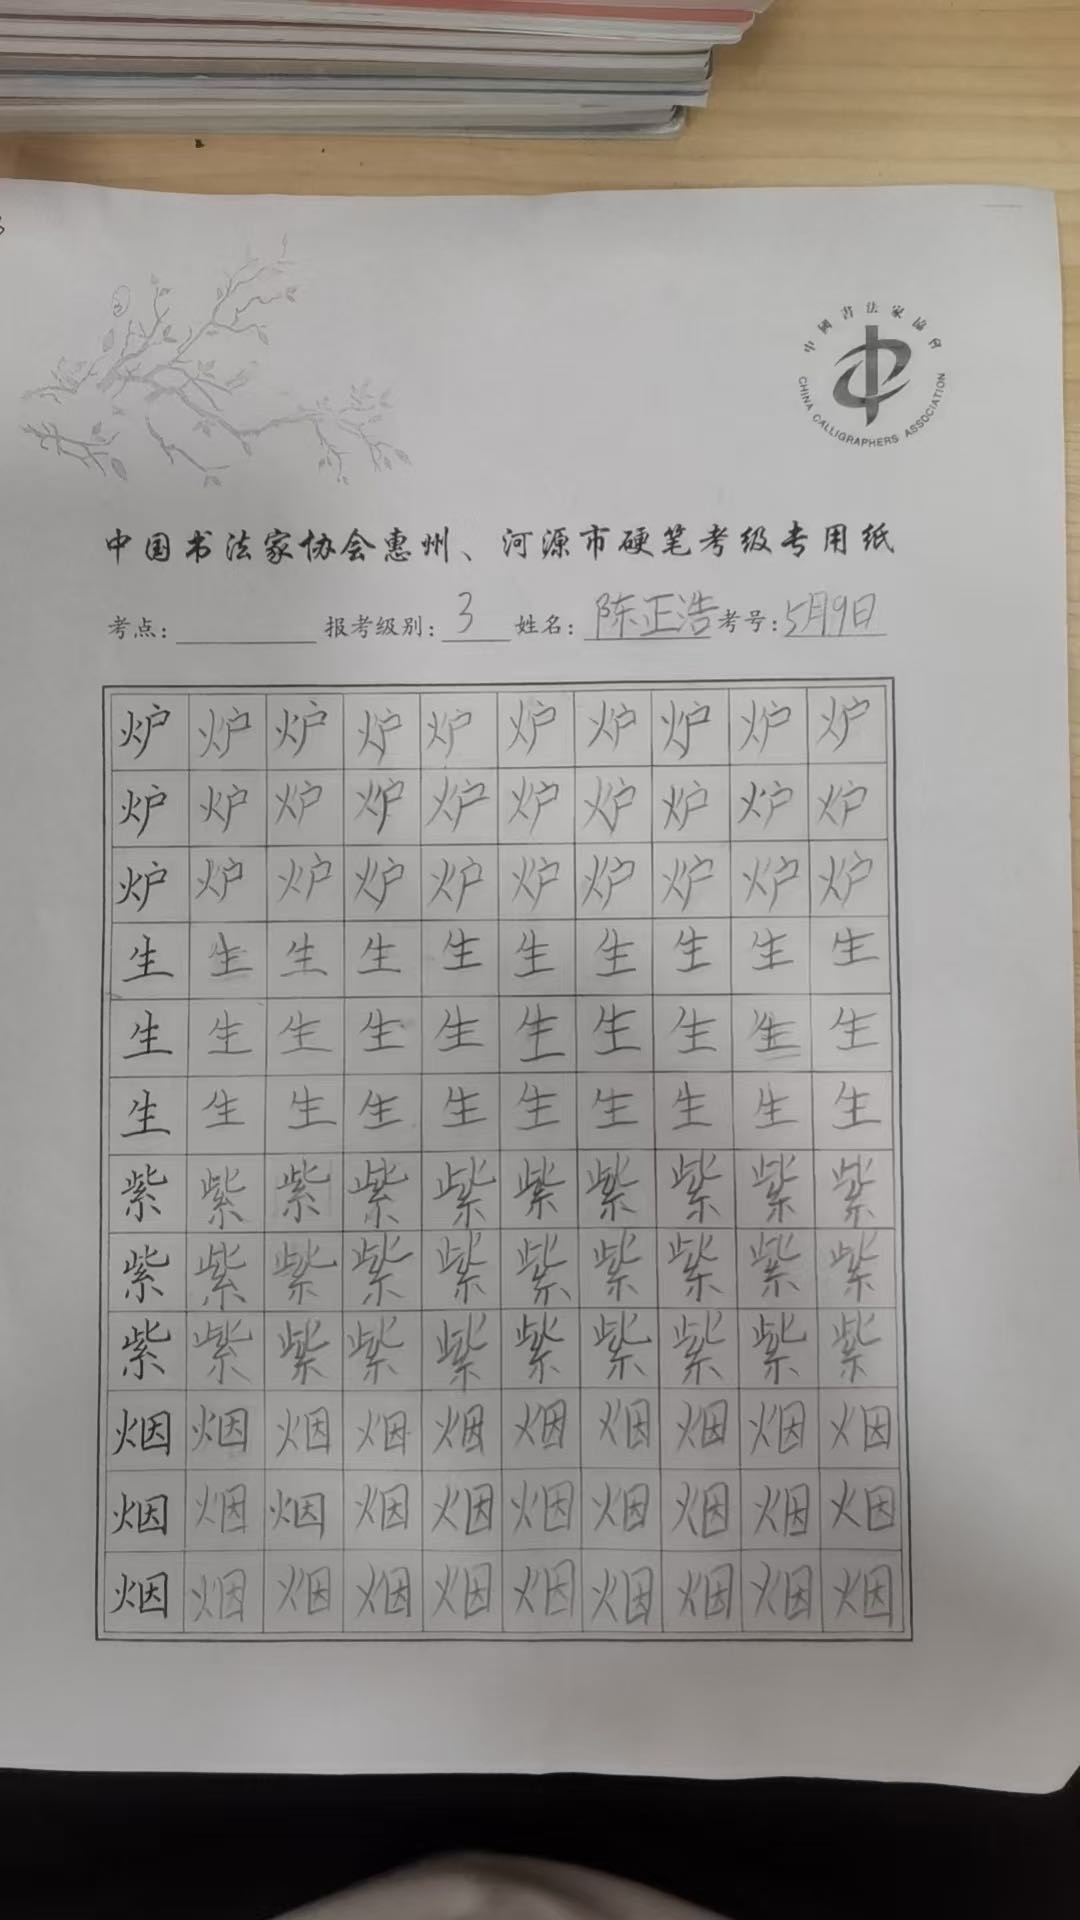 中國書法家協會
CHINA CALLIGRAPHERS ASSOCIATION
中国书法家协会惠州、河源市硬笔考级专用纸
考点: 报考级别: 3 姓名: 陈正浩 考号: 5月9日
炉炉炉炉炉炉炉炉炉炉
炉炉炉炉炉炉炉炉炉炉
炉炉炉炉炉炉炉炉炉炉
生生生生生生生生生生
生生生生生生生生生生
生生生生生生生生生生
紫紫紫紫紫紫紫紫紫紫
紫紫紫紫紫紫紫紫紫紫
紫紫紫紫紫紫紫紫紫紫
烟烟烟烟烟烟烟烟烟烟
烟烟烟烟烟烟烟烟烟烟
烟烟烟烟烟烟烟烟烟烟